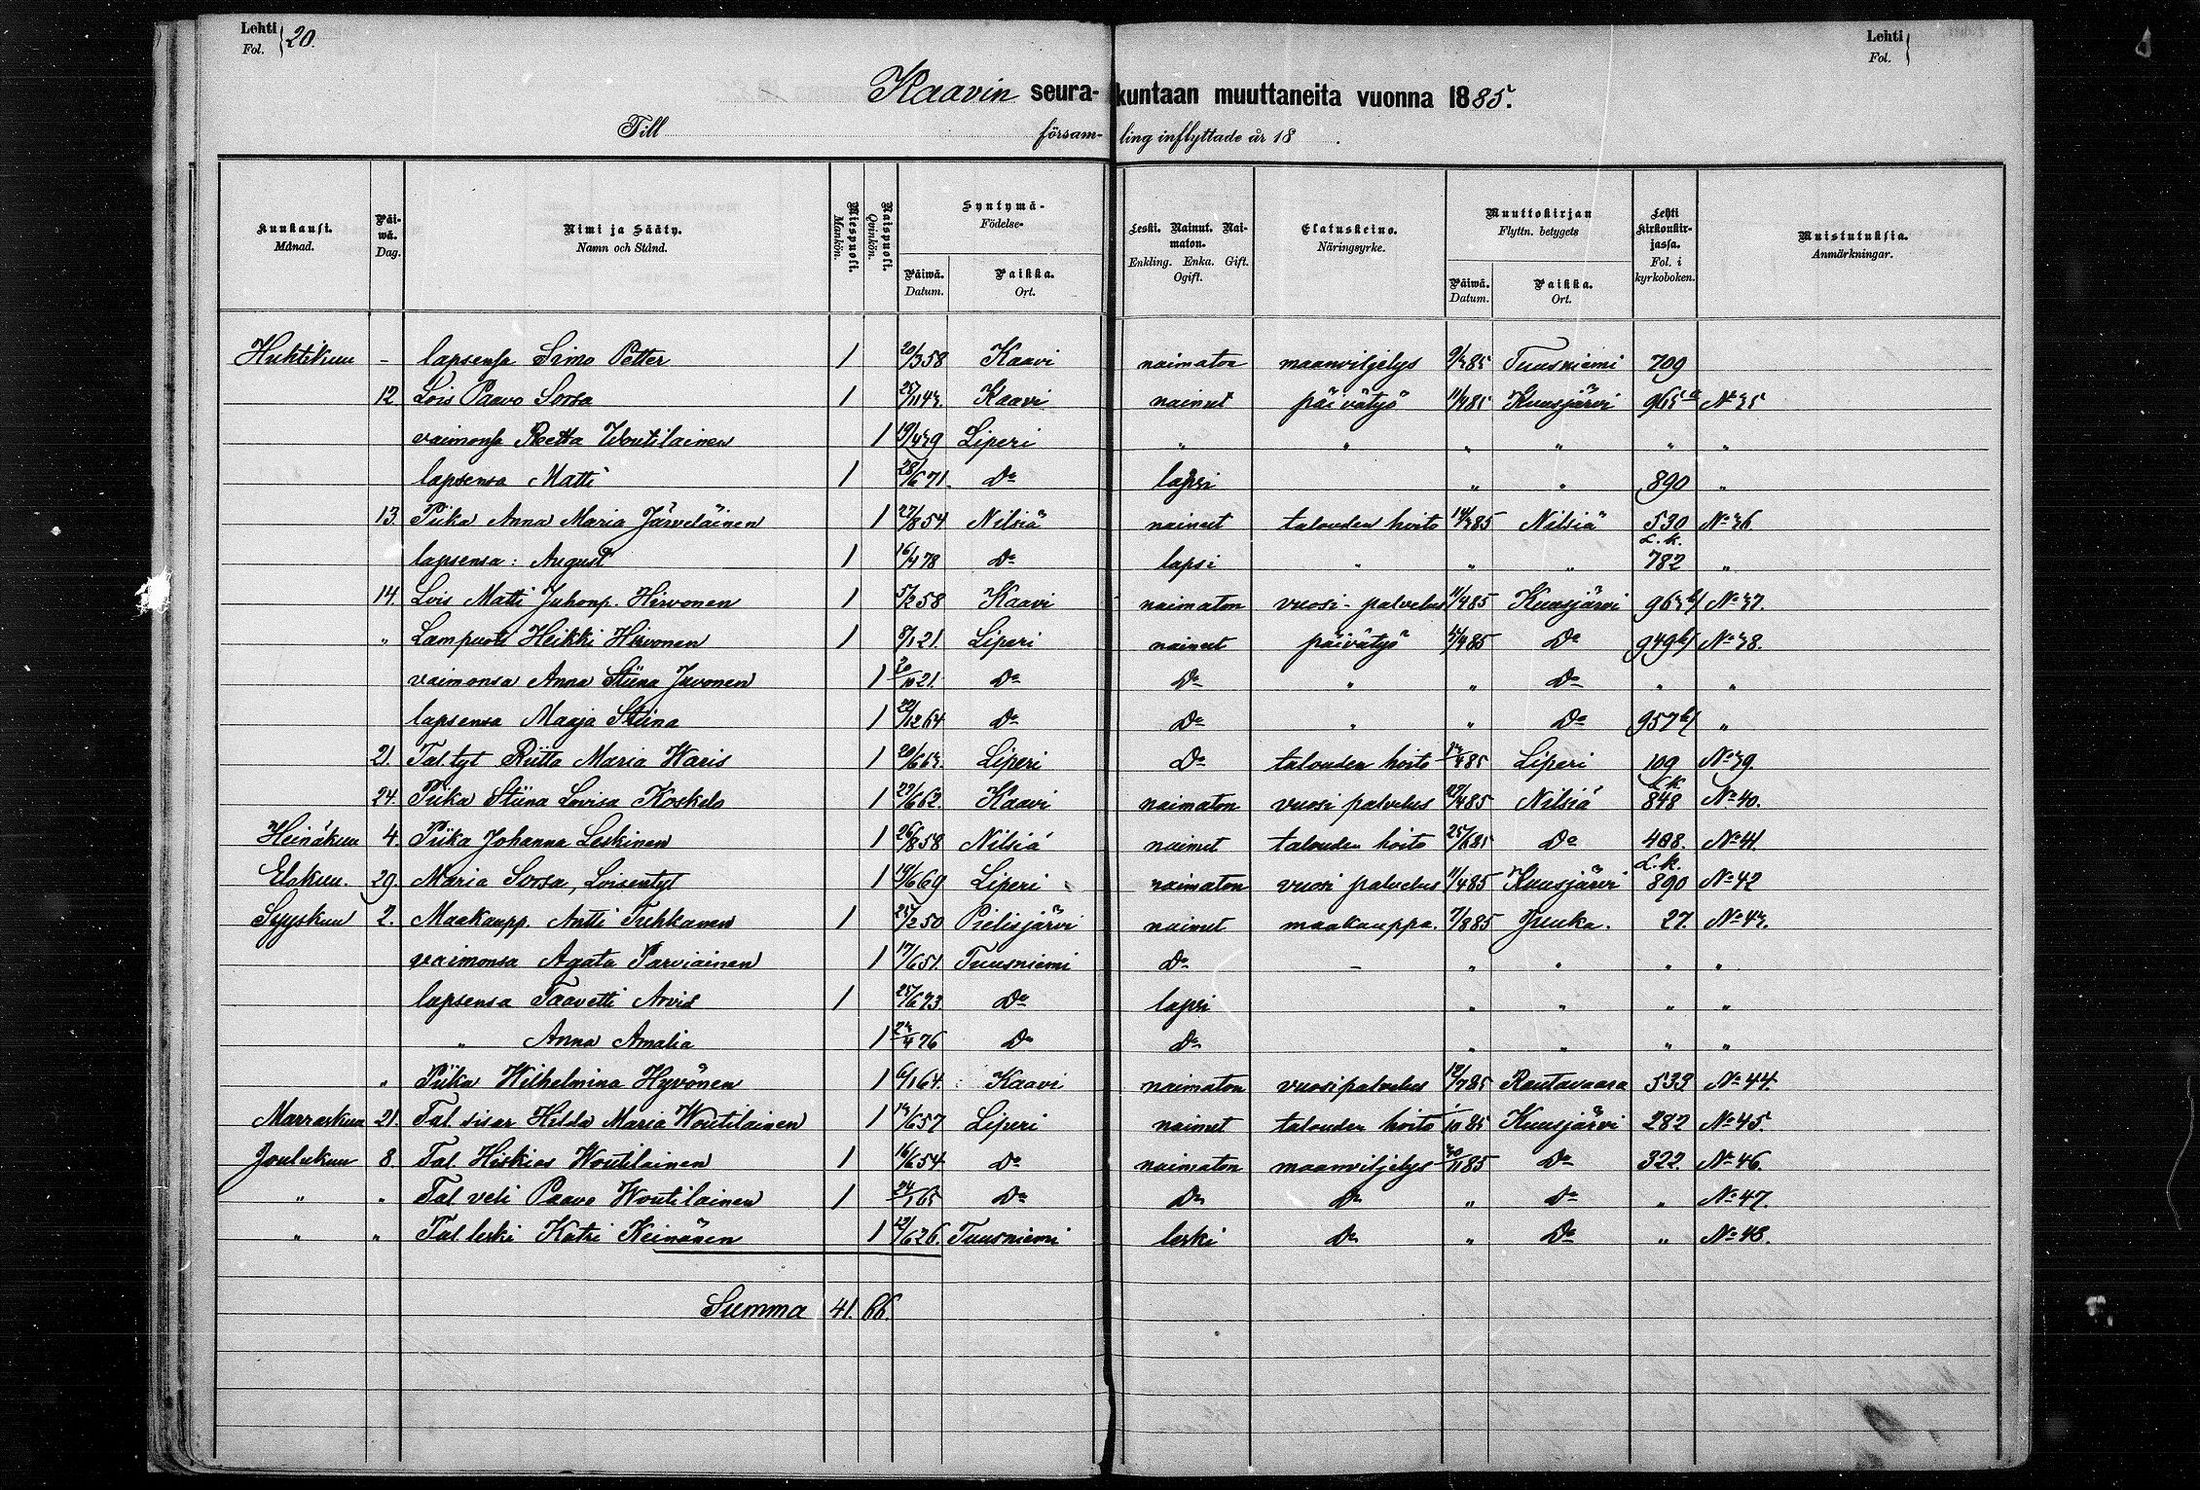 Lehti Fol. } 20.
Lehti Fol. }
Kaavin seura-kuntaan muuttaneita vuonna 1885.
Till försam-ling inflyttade år 18 .
Kuukausi. Månad.
Päi-wä. Dag.
Nimi ja Sääty. Namn och Stånd.
Miespuoli. Mankön.
Naispuoli. Qvinkön.
Syntymä- Födelse-
Päiwä. Datum.
Paikka. Ort.
Leski. Nainut. Nai-maton. Enkling. Enka. Gift. Ogift.
Elatuskeino. Näringsyrke.
Muuttokirjan Flyttn. betygets
Päiwä. Datum.
Paikka. Ort.
Lehti kirkonkir-jassa. Fol. i kyrkoboken.
Muistutuksia. Anmärkningar.
Huhtikuu - lapsensa Simo Petter 1 20/3 58 Kaavi naimaton maanviljelys 9/3 85 Tuusniemi 709
12 Lois Paavo Sorsa 1 25/11 43. Kaavi nainut päivätyö 11/4 85 Kuusjärvi 965 a No 35
vaimonsa Reetta Woutilainen 1 19/4 39 Liperi " " " " " "
lapsensa Matti 1 28/6 71. Do lapsi " " 890 "
13. Piika Anna Maria Järveläinen 1 27/8 54. Nilsiä nainut talouden hoito 14/3 85 Nilsiä 530 No 36
lapsensa: August 1 16/4 78 Do lapsi " " " L.k. 782 "
14. Lois Matti Juhonp. Hirvonen 1 5/2 58 Kaavi naimaton vuosi-palvelus 11/4 85 Kuusjärvi 963 b/ No 37.
" Heikki Hirvonen 1 8/1 21. Liperi nainut päivätyö /4 85 Do 949 b/ No 38.
vaimonsa Anna Stiina Juvonen 1 20/10 21. Do Do " " Do " "
lapsensa Maaja Stiina 1 22/12 64 Do Do " " Do 957 b/ "
21. Tal. tyt Riitta Maria Waris 1 20/6 63. Liperi Do talouden hoito /4 85 Liperi 109 No 39.
24. Piika Stiina Lovisa Koskelo 1 23/6 62. Kaavi naimaton vuosi palvelus 27/4 85 Nilsiä L.k. 848 No 40.
Heinäkuu 4. Piika Johanna Leskinen 1 26/8 58 Nilsiä nainut talouden hoito 25/6 85 Do 408. No 41.
Elokuu. 29. Maria Sorsa, Loisentyt 1 19/6 69 Liperi naimaton vuosi palvelus 11/4 85 Kuusjärvi L.k. 890 No 42
Syyskuu 2. Maakaupp. Antti Tuhkanen 1 25/2 50 Pielisjärvi nainut maakauppa. 7/8 85 Juuka. 27. No 43.
vaimonsa Agata Parviainen 1 17/6 51. Tuusniemi Do - " " " "
lapsensa Taavetti Arvid 1 25/6 73. Do lapsi " " " "
" Anna Amalia 1 23/4 76 Do Do " " " "
" Piika Wilhelmina Hyvönen 1 6/1 64. Kaavi naimaton vuosipalvelus 12/7 85 Rautavaara 533 No 44
Marraskuu 21. Tal. sisar Hilda Maria Woutilainen 1 13/6 57 Liperi nainut talouden hoito /10 85 Kuusjärvi 282 No 45.
Joulukuu 8. Tal. Hiskias Woutilainen 1 16/6 54 Do naimaton maanviljelys 30/11 85 Do 322. No 46.
" " Tal veli Paavo Woutilainen 1 24/1 65 Do Do Do " Do " No 47.
" " Tal. leski Katri Keinänen 1 12/6 26. Tuusniemi leski Do " Do " No 48.
Summa 41. 66.